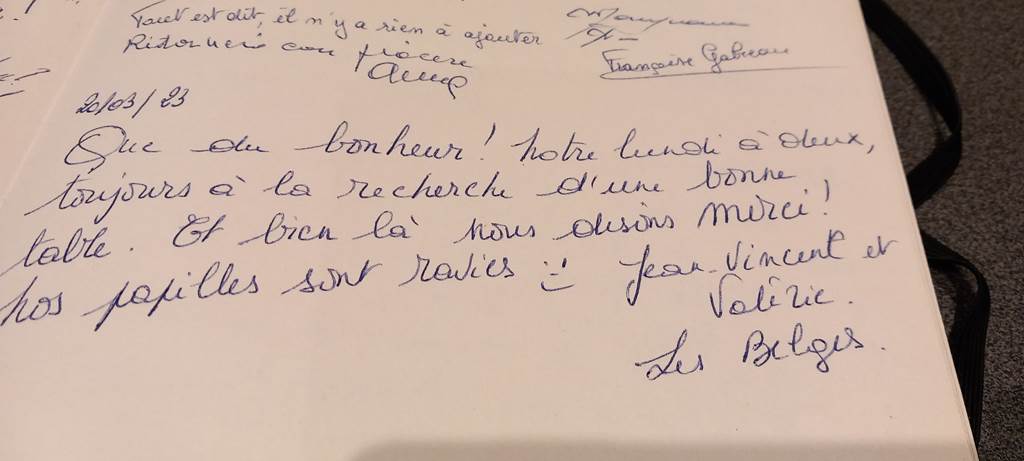 Tout est dit, il n'y a rien à ajouter
Ritornerò con piacere
Anna
Françoise Gabreau
20/03/23
Que du bonheur! notre lundi à deux,
toujours à la recherche d'une bonne
table. Et bien là nous disons merci!
nos papilles sont ravies :-) Jean-Vincent et
Valérie.
Les Belges.